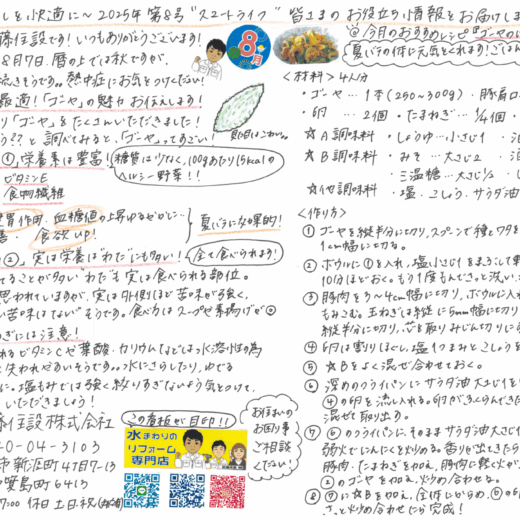 しを快適に～2025年第8号"スマートライフ"
皆さまのお役立ち情報をお届けしま
藤住設です！いつもありがとうございます！
8月7日、暦の上では秋ですが、
続きそうです。熱中症にお気をつけください！
最適！「ゴーヤ」の魅力お伝えします！
り「ゴーヤ」をたくさんいただきました！
う？？と調べてみると、「ゴーヤ」ってすごい！
①,栄養素は豊富！
糖質は少なく、100gあたり15kcalの
ヘルシー野菜！！
ビタミンE
食物繊維
胃作用・血糖値の上昇ゆるやかに…
善・食欲UP！
夏バテにも効果的！
②,実は栄養は"わた"にも多い！
全て食べられます！
てることが多い"わた"も実は食べられる部位。
思われていますが、実は外側ほど苦味が強く、
い苦味はない"そうです。食べ方はスープや素揚げが◎
ぎには注意！
れるビタミンCや葉酸、カリウムなどは水溶性の為
と失われやすいそうです。
いただきましょう！
藤住設株式会社
0-04-3103
市新涯町47 17-13
町6413
7:00 休日土日祝
8月
この看板が目印！！
水まわりの
リフォーム
専門店
お住まいの
お困り事
ご相談
ください！
◎今月のおすすめレシピ『ゴーヤの
夏バテの体に元気とくれます！ごはん
＜材料＞4人分
・ゴーヤ…1本(250～300g)・豚肩ロ
・卵…2個・たまねぎ…1/4個・
☆A調味料・しょうゆ…小さじ1
★B調味料・みそ…大さじ2
・三温糖…大さじ1/2
☆他調味料・塩・こしょう・サラダ油
＜作り方＞
① ゴーヤを縦半分に切り、スプーンで種とワタを
1cm幅に切る。
② ボウルに①を入れ、塩小さじ1をまぶして軽
10分ほどおく。もう1度もんで、さっと洗い、
③ 豚肉を3～4cm幅に切り、ボウルに入れ
もみこむ。玉ねぎは縦に5mm幅に切り
縦半分に切り、芯を取りみじん切りに
④ 卵は割りほぐし、塩1つまみとこしょうを
⑤ ★Bをよく混ぜ合わせておく。
⑥ 深めのフライパンにサラダ油大さじ1を
④の卵を流し入れる。卵がふくらんできた
混ぜて取り出す。
⑦ ⑥のフライパンに、そのままサラダ油大さじ
弱火でにんにくを炒める。香りが出てきたら
豚肉、たまねぎを加え、豚肉に軽く火が
②のゴーヤを加え、炒め合わせる。
⑧ ⑦に★Bを加え、全体にからめ、⑥の
さっと炒め合わせたら完成！